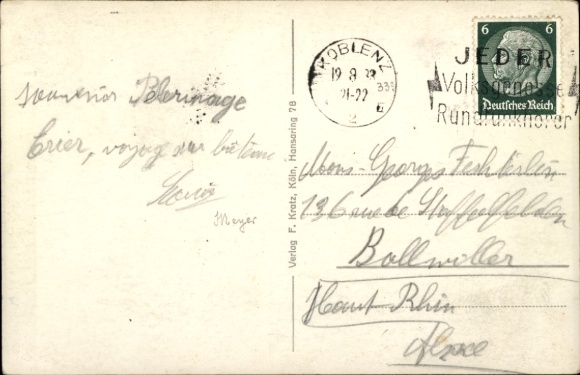 souvenir Pelerinage
Trier, voyag sur bateau
Marie
Meyer
Verlag F. Kratz, Köln, Hansaring 78
KOBLENZ
19 8 33
21-22
2 E
JEDER
Volksgenosse
Rundfunkhörer
6 6
Deutsches Reich
Mons Georges
136 rue de
Bollwiller
Haut Rhin
Alsace